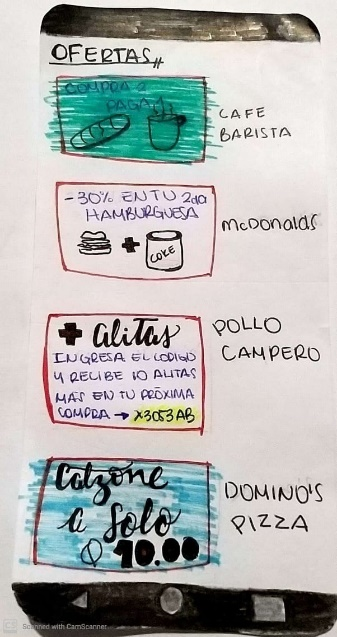 OFERTAS
COMPRA 2
PAGA 1
CAFE
BARISTA
-30% EN TU 2da
HAMBURGUESA
+
COKE
McDonalds
+ alitas
INGRESA EL CODIGO
Y RECIBE 10 ALITAS
MAS EN TU PRÓXIMA
COMPRA → X3053AB
POLLO
CAMPERO
Calzone
a solo
Q 10.00
DOMINO'S
PIZZA
CS Scanned with CamScanner